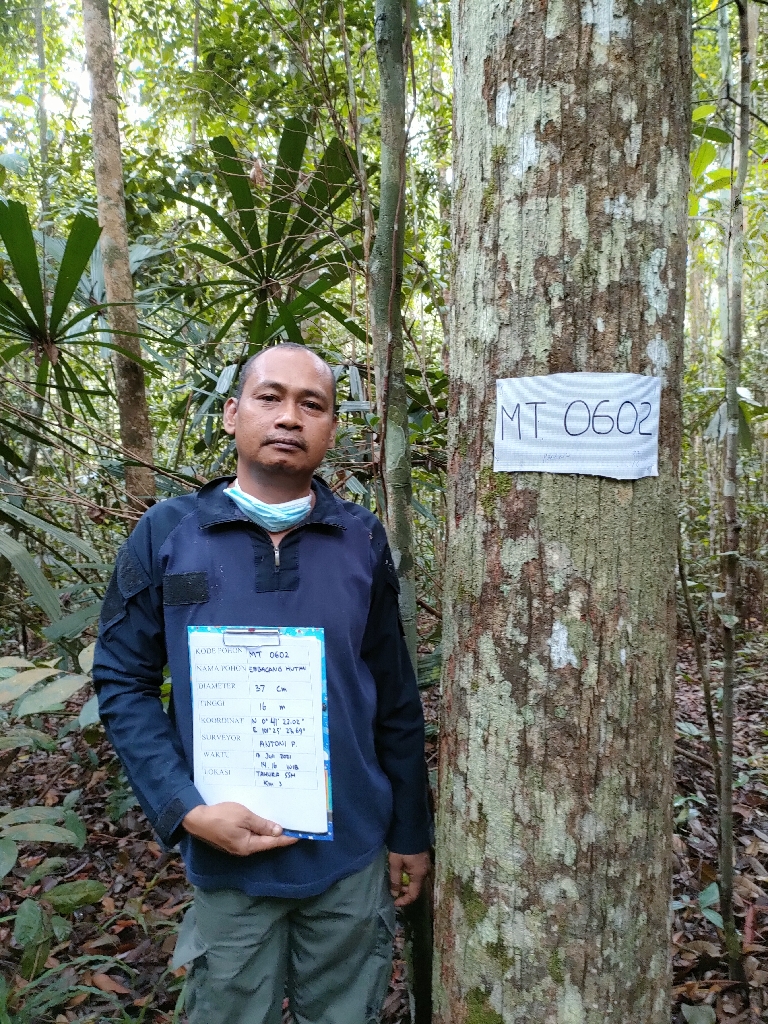 MT 0602
KODE POHON MT 0602
NAMA POHON EMBACANG HUTAN
DIAMETER 37 cm
TINGGI 16 m
KOORDINAT N 0° 41' 22.02"
E 101° 25' 23.69"
SURVEYOR ANTONI P.
WAKTU Jul 2021
14.16 WIB
LOKASI TAHURA SSH
KM 3